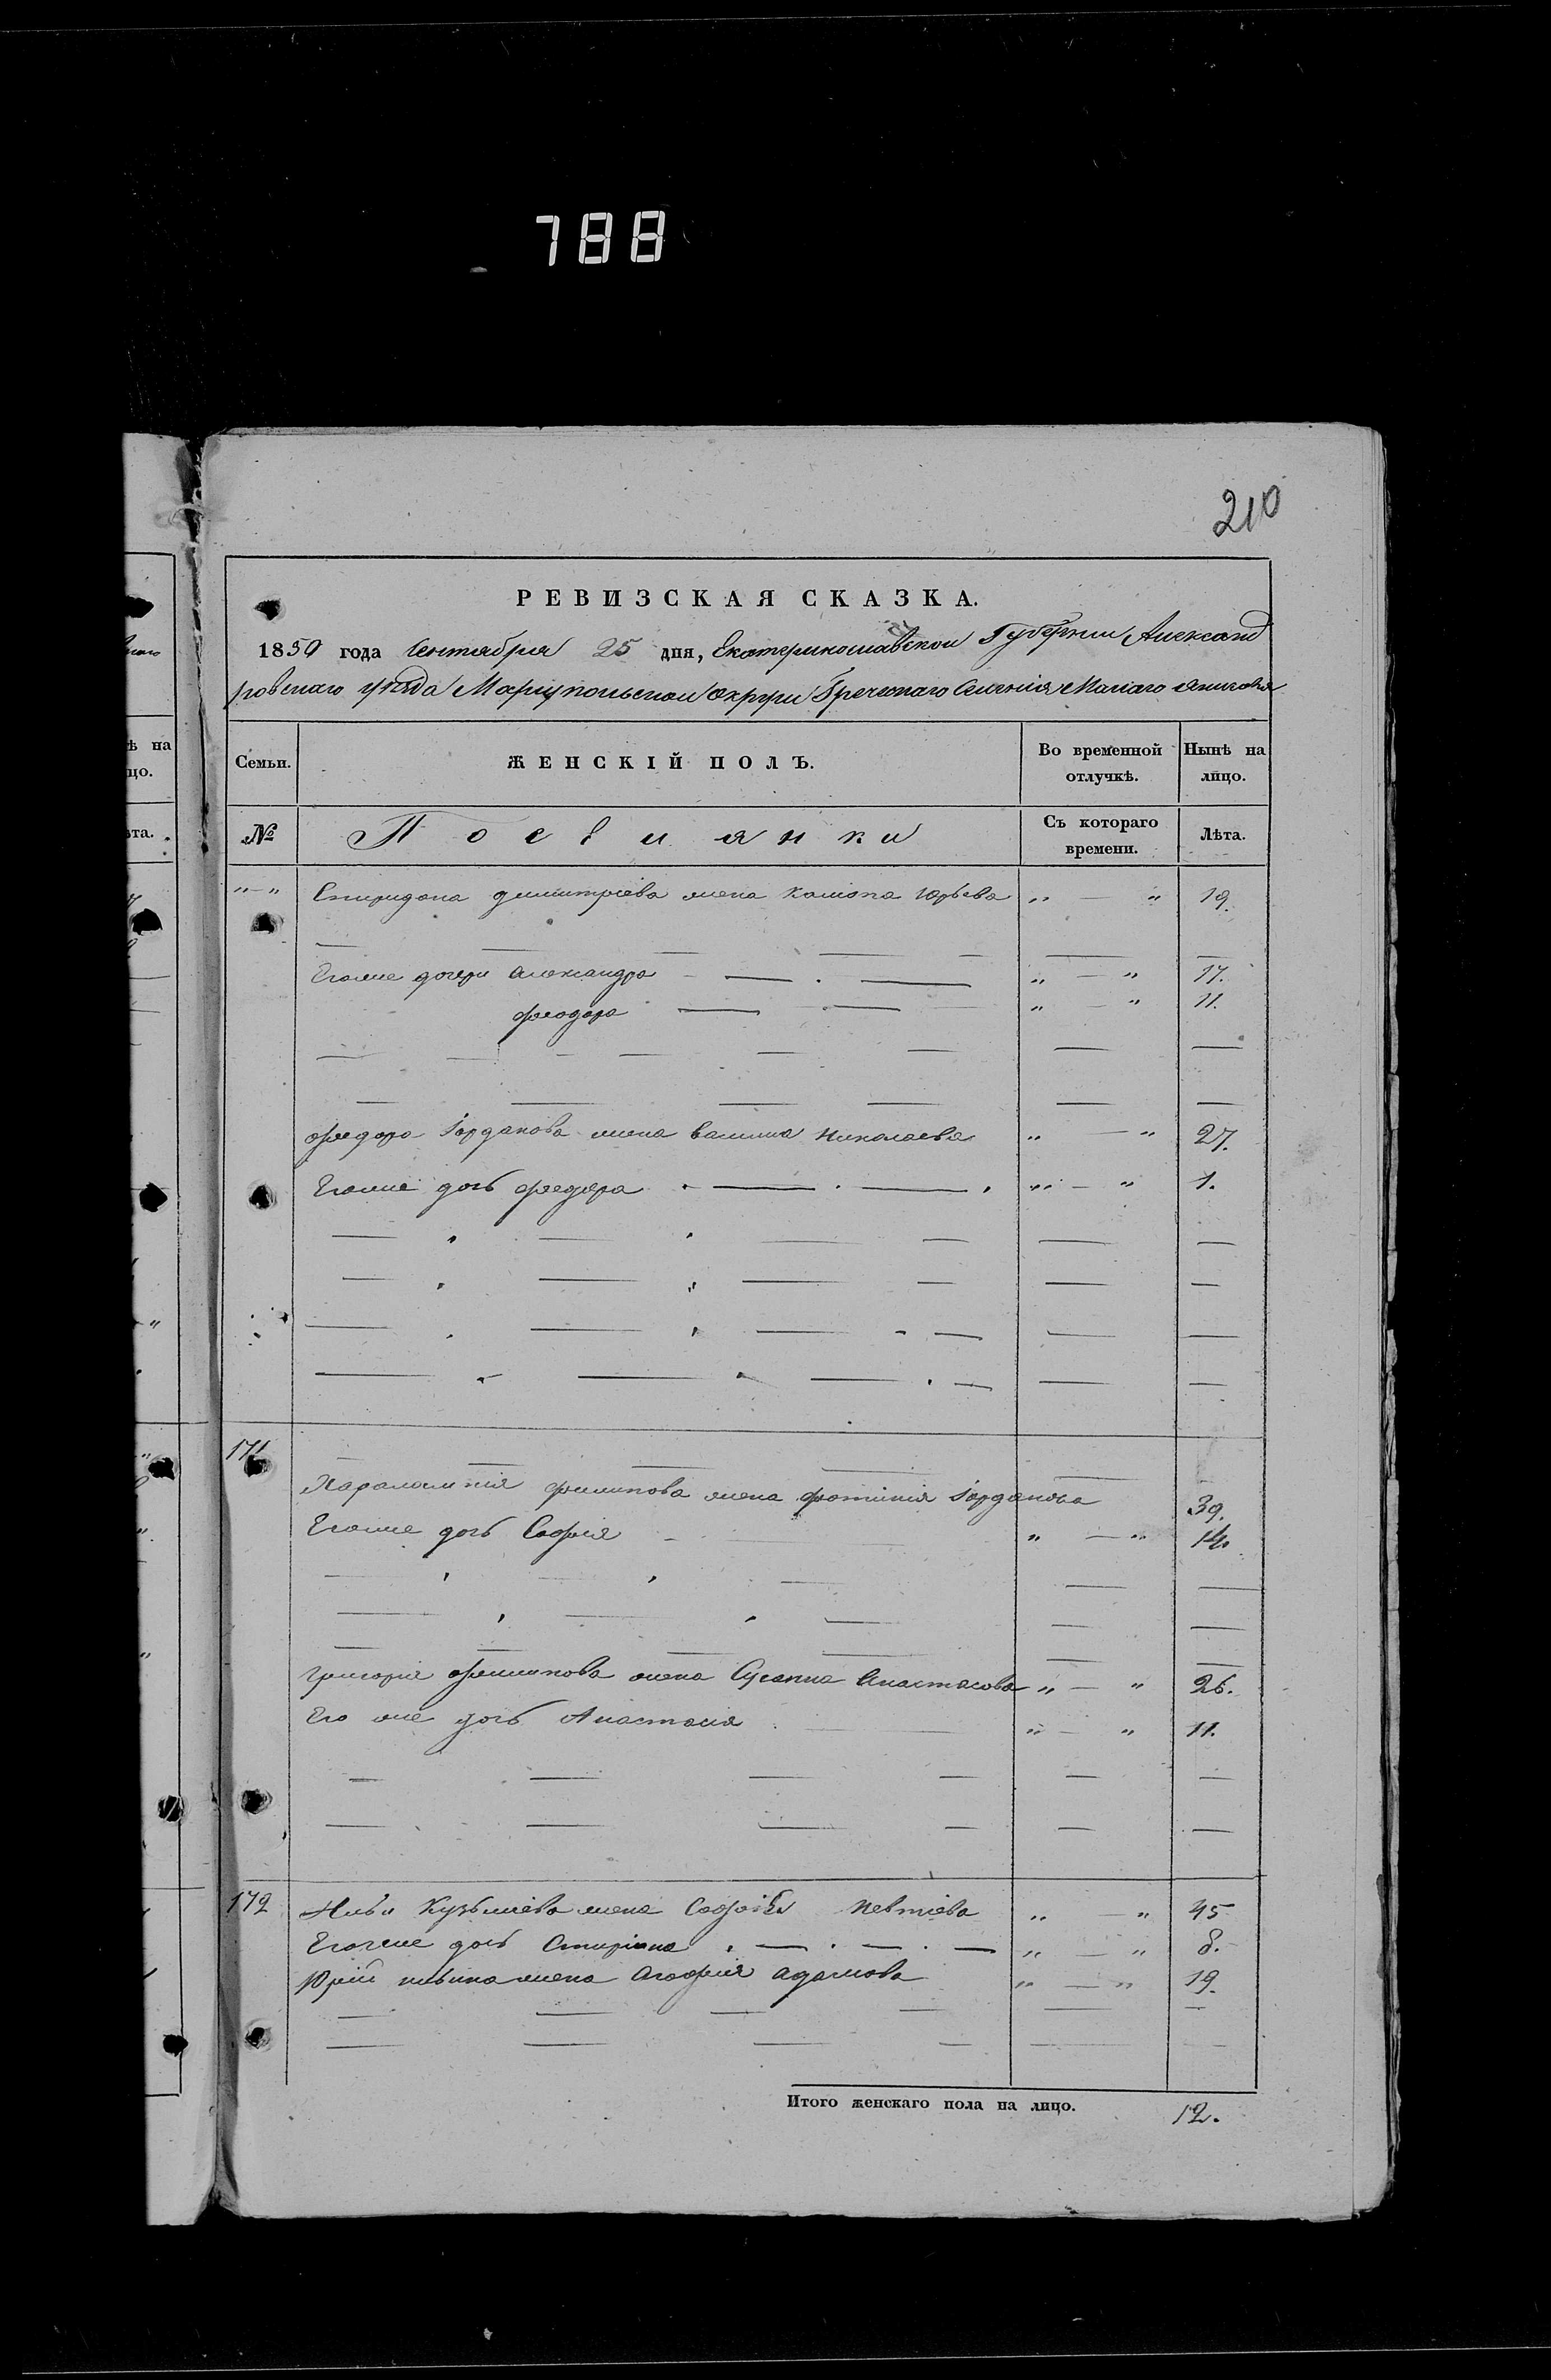 788
210
РЕВИЗСКАЯ СКАЗКА.
1859 года Сентября 25 дня, Екатеринославской Губернии Александ
ровскаго уезда Мариупольской округи Греческаго Селенія Малаго Янисоля
ѣ на
цо.
Семьи.
ЖЕНСКІЙ ПОЛЪ.
Во временной
отлучкѣ.
Нынѣ на
лицо.
ѣта.
№
Поселянки
Съ котораго
времени.
Лѣта.
„ — „ Спиридона Димитріева жена Калиопа Юрьева „ — „ 19.
Егоже дочери Александра „ — „ 17.
Феодора „ — „ 11.
Федора Іорданова жена Василиа Николаева „ — „ 27.
Егоже дочь Федора „ — „ 1.
171
Харалампія Филипова жена Фотинія Іорданова 39.
Егоже дочь Софія „ — „ 14.
Григорія Филипова жена Сусанна Анастасова „ — „ 26.
Его же дочь Анастасія „ — „ 11.
172 Ильи Кузьмича жена „ — „ 45
Егоже дочь „ — „ 8.
Юрій Ильина жена Агафія Адамова „ — „ 19.
Итого женскаго пола на лицо. 12.